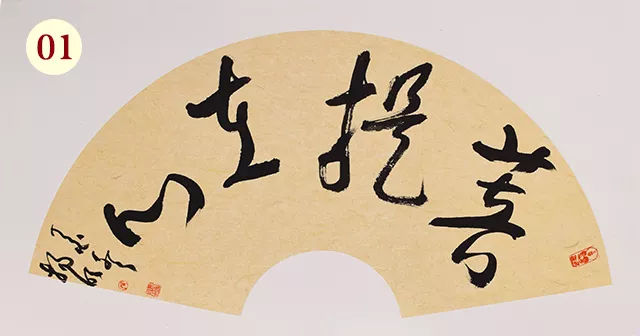 01
菩提在心